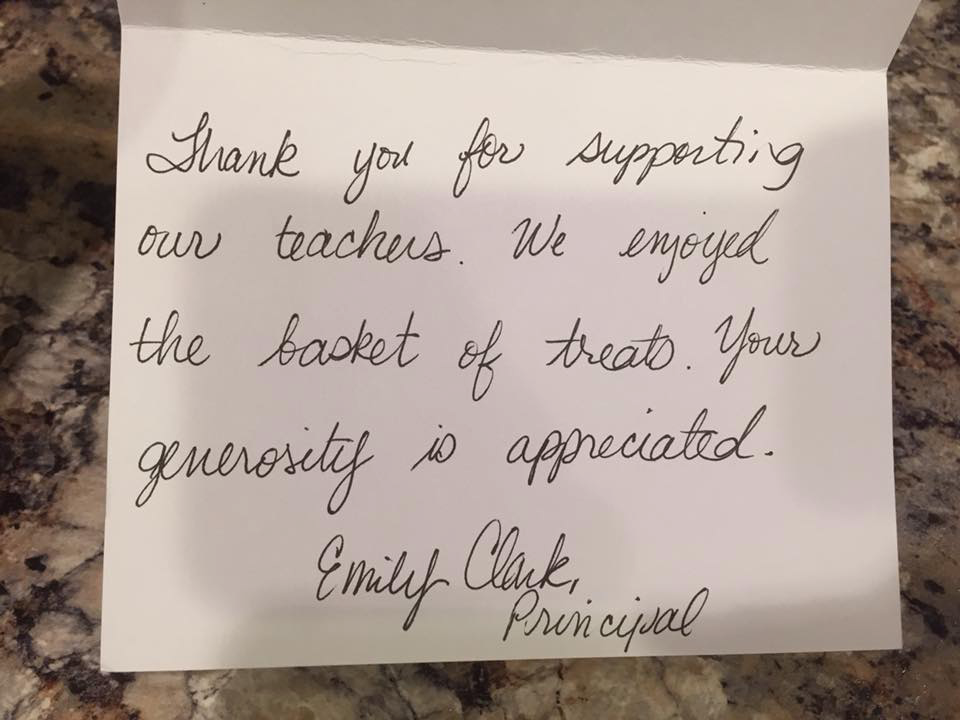 Thank you for supporting
our teachers. We enjoyed
the basket of treats. Your
generosity is appreciated.
Emily Clark,
Principal